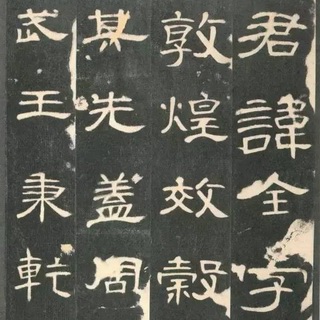 君諱全字
敦煌效穀
其先蓋周
武王秉乾